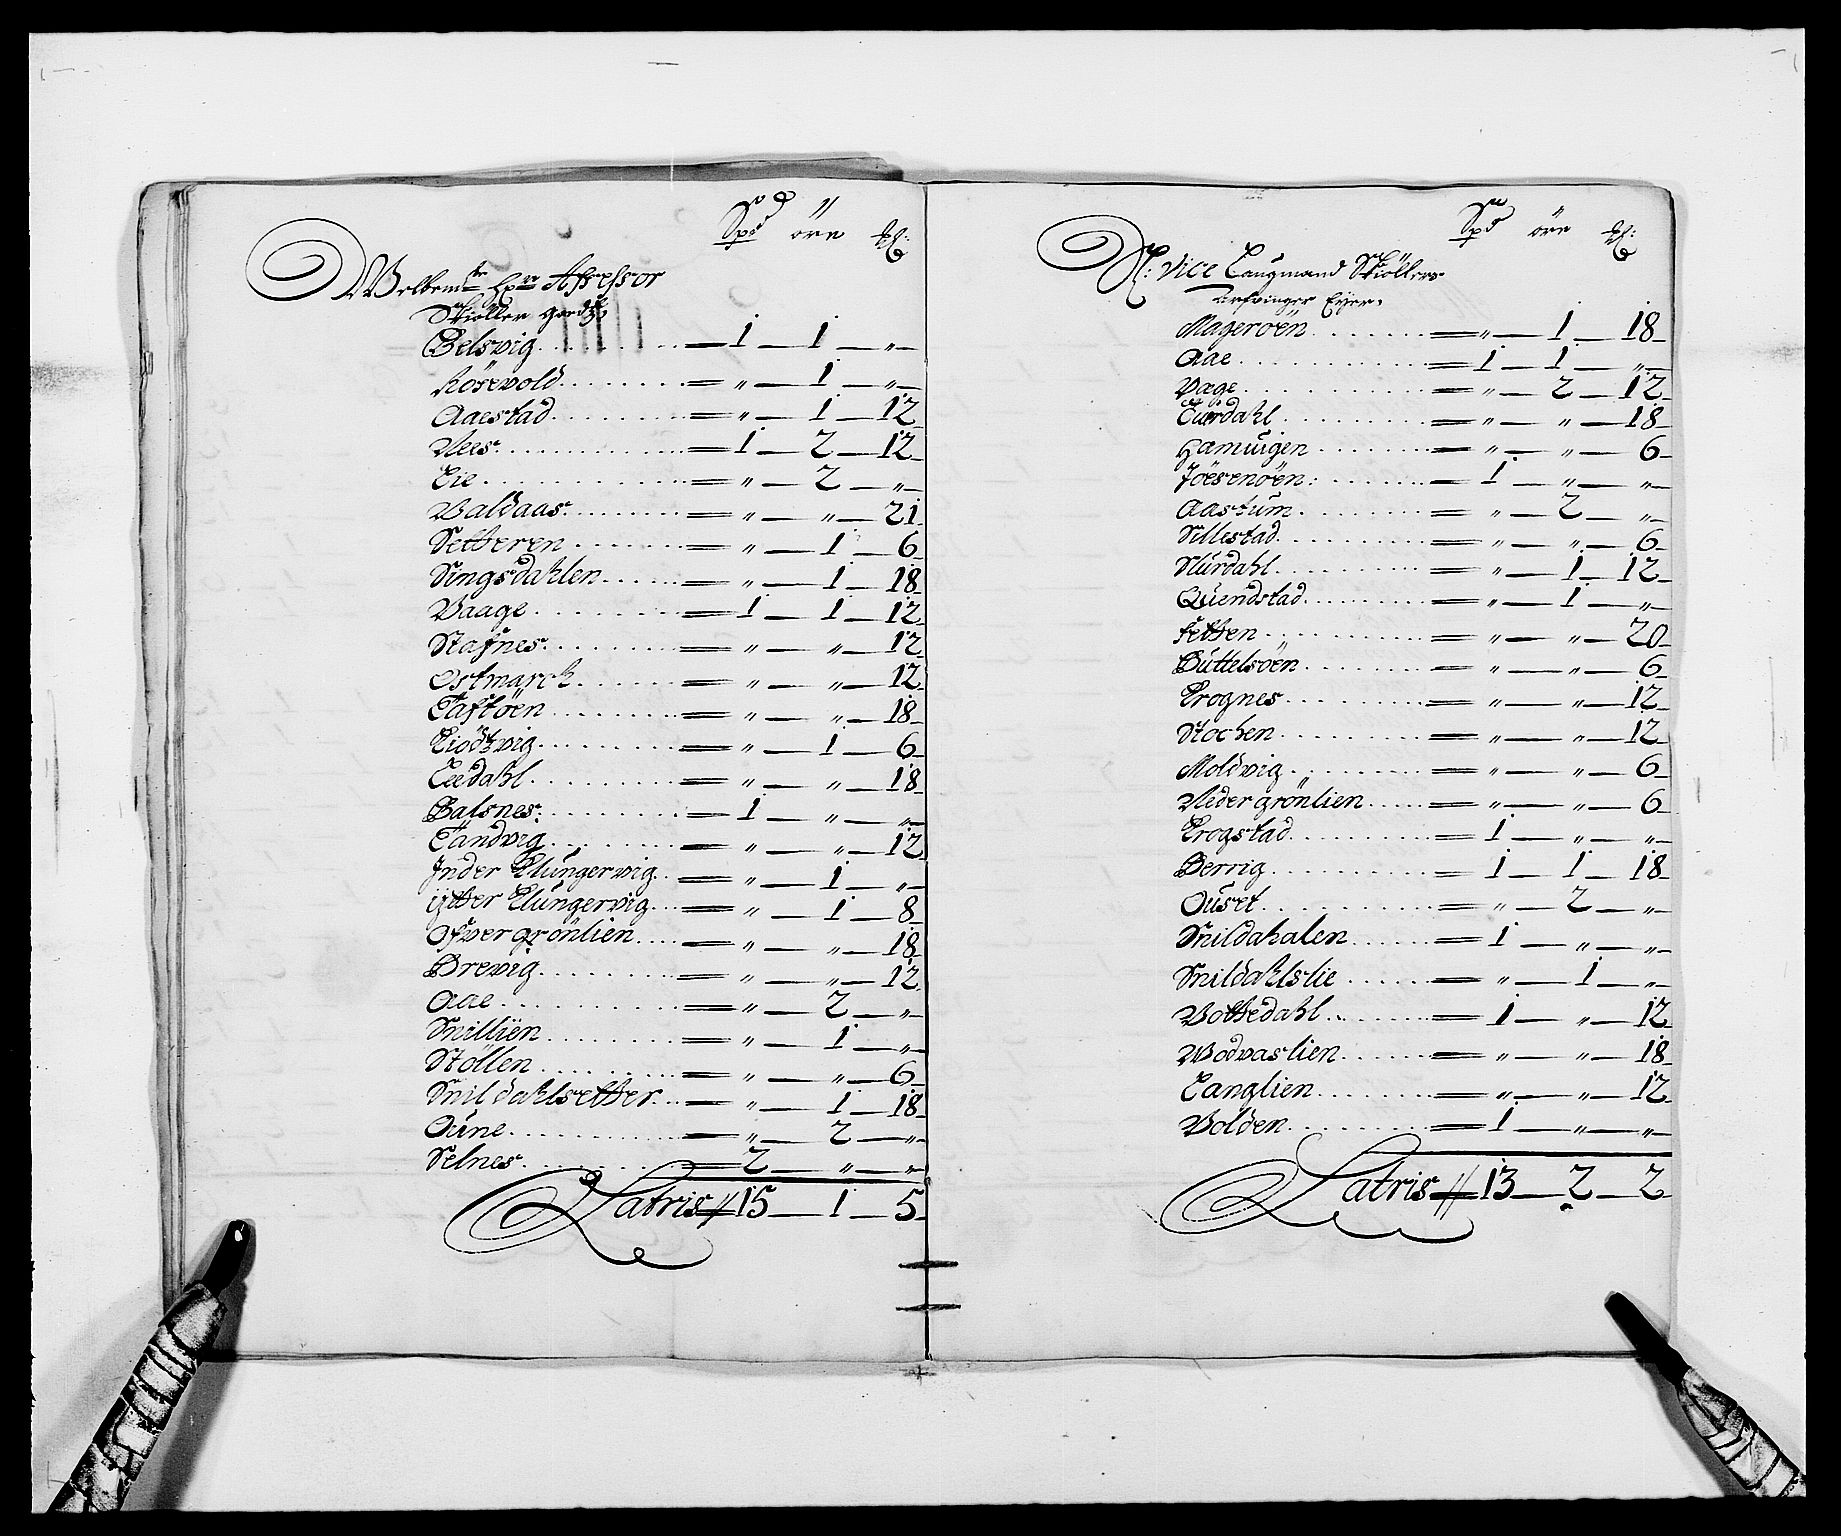 Spd öre
Welbemte Hrr Assessor
Skiöller
Belsvig = 1 — 1 — "
Rösevold = " — 1 — "
Aaestad = " — 1 — 12
Nees = 1 — 2 — 12
Eie = " — 2 — "
Valdaas = " — " — 21
Setteren = " — 1 — 6
Singsdahlen = " — 1 — 18
Vaage = 1 — 1 — 12
Stafnes = " — " — 12
Ostmarch = " — " — 12
Taftöen = " — " — 18
Kiodtvig = " — 1 — 6
Leedahl = " — " — 18
Balsnes: = 1 — " — "
Tandvig = " — " — 12
Inder Klungervig = " — 1 — "
ÿtter Klungervig = " — 1 — 8
Ofver grönlien = " — " — 18
Brevig = " — " — 12
Aae = " — 2 — "
Snillien = " — 1 — "
Stöllen = " — " — 6
Snildahlsetter = " — 1 — 18
Oune = " — 2 — "
Selnes = 2 — " — "
Latris // 15 — 1 — 5
Spd öre
H: Vice Laugmand Skiöllers
Arfvinger Eyer
Mageröen = " — 1 — 18
Aae = 1 — 1 — "
Vage = " — 2 — 12
= " — " — 18
Hamvigen = " — " — 6
Jöesenöen: = 1 — " — "
Aastum = " — 2 — "
Sillestad = " — " — 6
Slurdahl = " — 1 — 12
Quendstad = " — 1 — "
Fetten = " — " — 20
Buttelsöen = " — " — 6
Krognes = " — " — 12
Stochen = " — " — 12
Moldvig = " — " — 6
Neder grönlien = " — " — 6
Krogstad = 1 — " — "
Berrig = 1 — 1 — 18
Ouset = " — 2 — "
Snildahalen = 1 — " — "
Snildahlslie = " — 1 — "
Vottedahl = 1 — " — 12
Vodvaslien = " — " — 18
Langlien = " — " — 12
Volden = 1 — " — "
Latris // 13 — 2 — 2